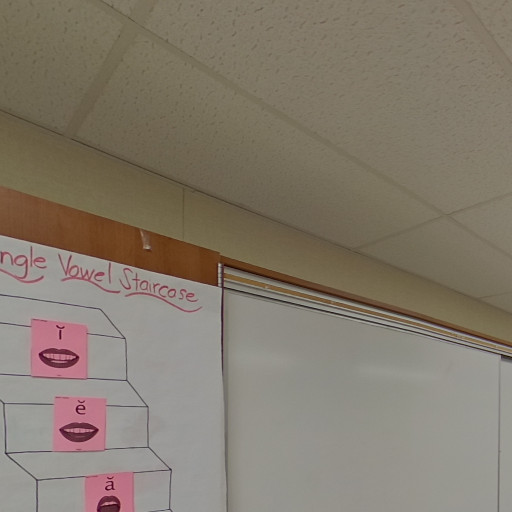 ngle Vowel Staircase
ĭ
ĕ
ă